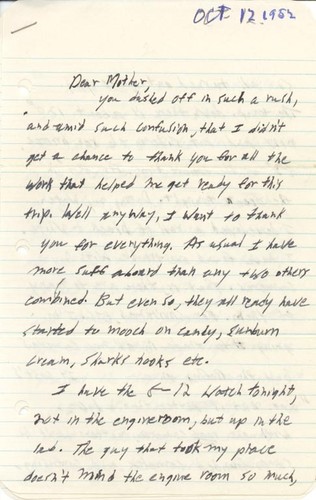 OCT 12 1952
Dear Mother,
you dashed off in such a rush,
and amid such confusion, that I didn't
get a chance to thank you for all the
work that helped me get ready for this
trip. Well anyway, I want to thank
you for everything. As usual I have
more suff aboard than any two others
combined. But even so, they all ready have
started to mooch on candy, sunburn
cream, sharks hooks etc.
I have the 6-12 watch tonight,
not in the engineroom, but up in the
lab. The guy that took my place
doesn't mind the engine room so much,